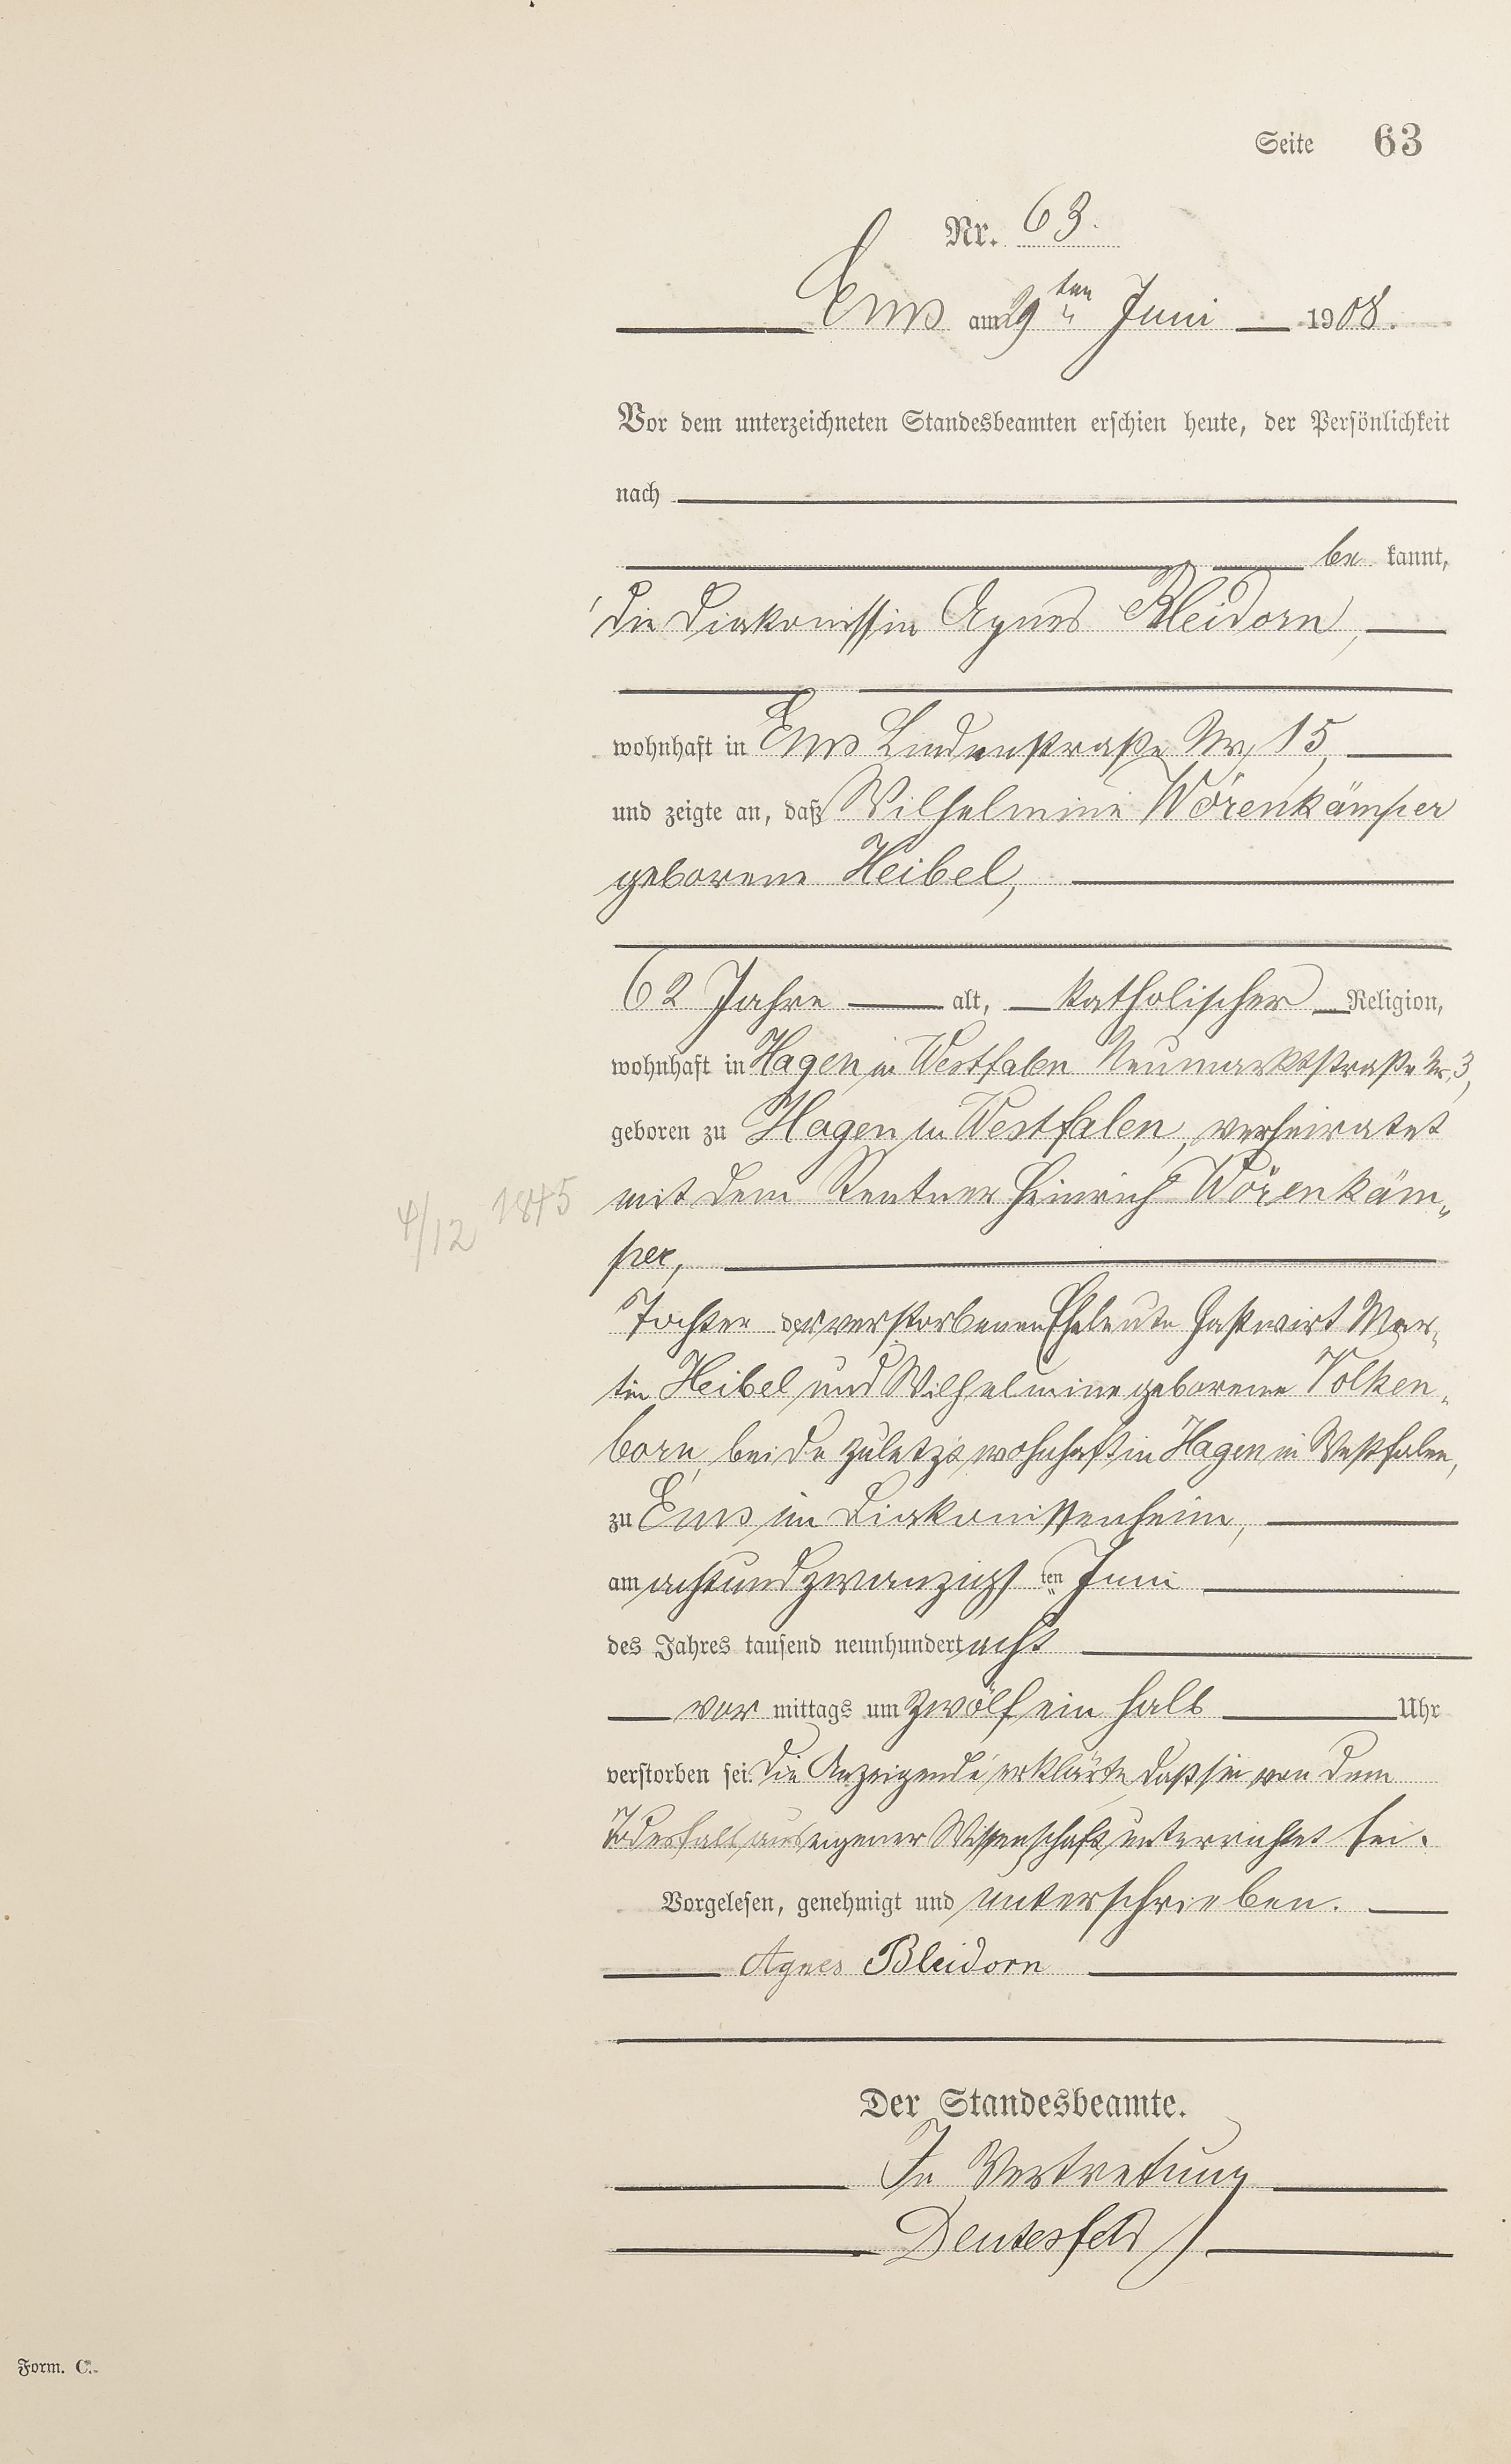 Seite 63
Nr. 63.
Ems am 29ten Juni 1908.
Vor dem unterzeichneten Standesbeamten erschien heute, der Persönlichkeit
nach
be kannt,
die Diakonissin Agnes Bleidorn,
wohnhaft in Ems Lindenstraße Nr. 15,
und zeigte an, daß Wilhelmine Wörenkämper
geborene Heibel,
62 Jahre alt, katholischer Religion,
wohnhaft in Hagen in Westfalen Neumarktstraße Nr. 3,
geboren zu Hagen in Westfalen, verheiratet
mit dem Rentner Heinrich Wörenkäm„
4/12 1845
per,
Tochter der verstorbenen Eheleute Gastwirt Mar„
tin Heibel und Wilhelmine geborene Volken„
born, beide zuletzt wohnhaft in Hagen in Westfalen,
zu Ems im Diakonissenheim,
am achtundzwanzigsten Juni
des Jahres tausend neunhundert acht
vor mittags um zwölf ein halb Uhr
verstorben sei. Die Anzeigende erklärte, daß sie von dem
Todesfall aus eigener Wissenschaft unterrichtet sei.
Vorgelesen, genehmigt und unterschrieben.
Agnes Bleidorn
Der Standesbeamte.
In Vertretung
Deutesfeld
Form. C.